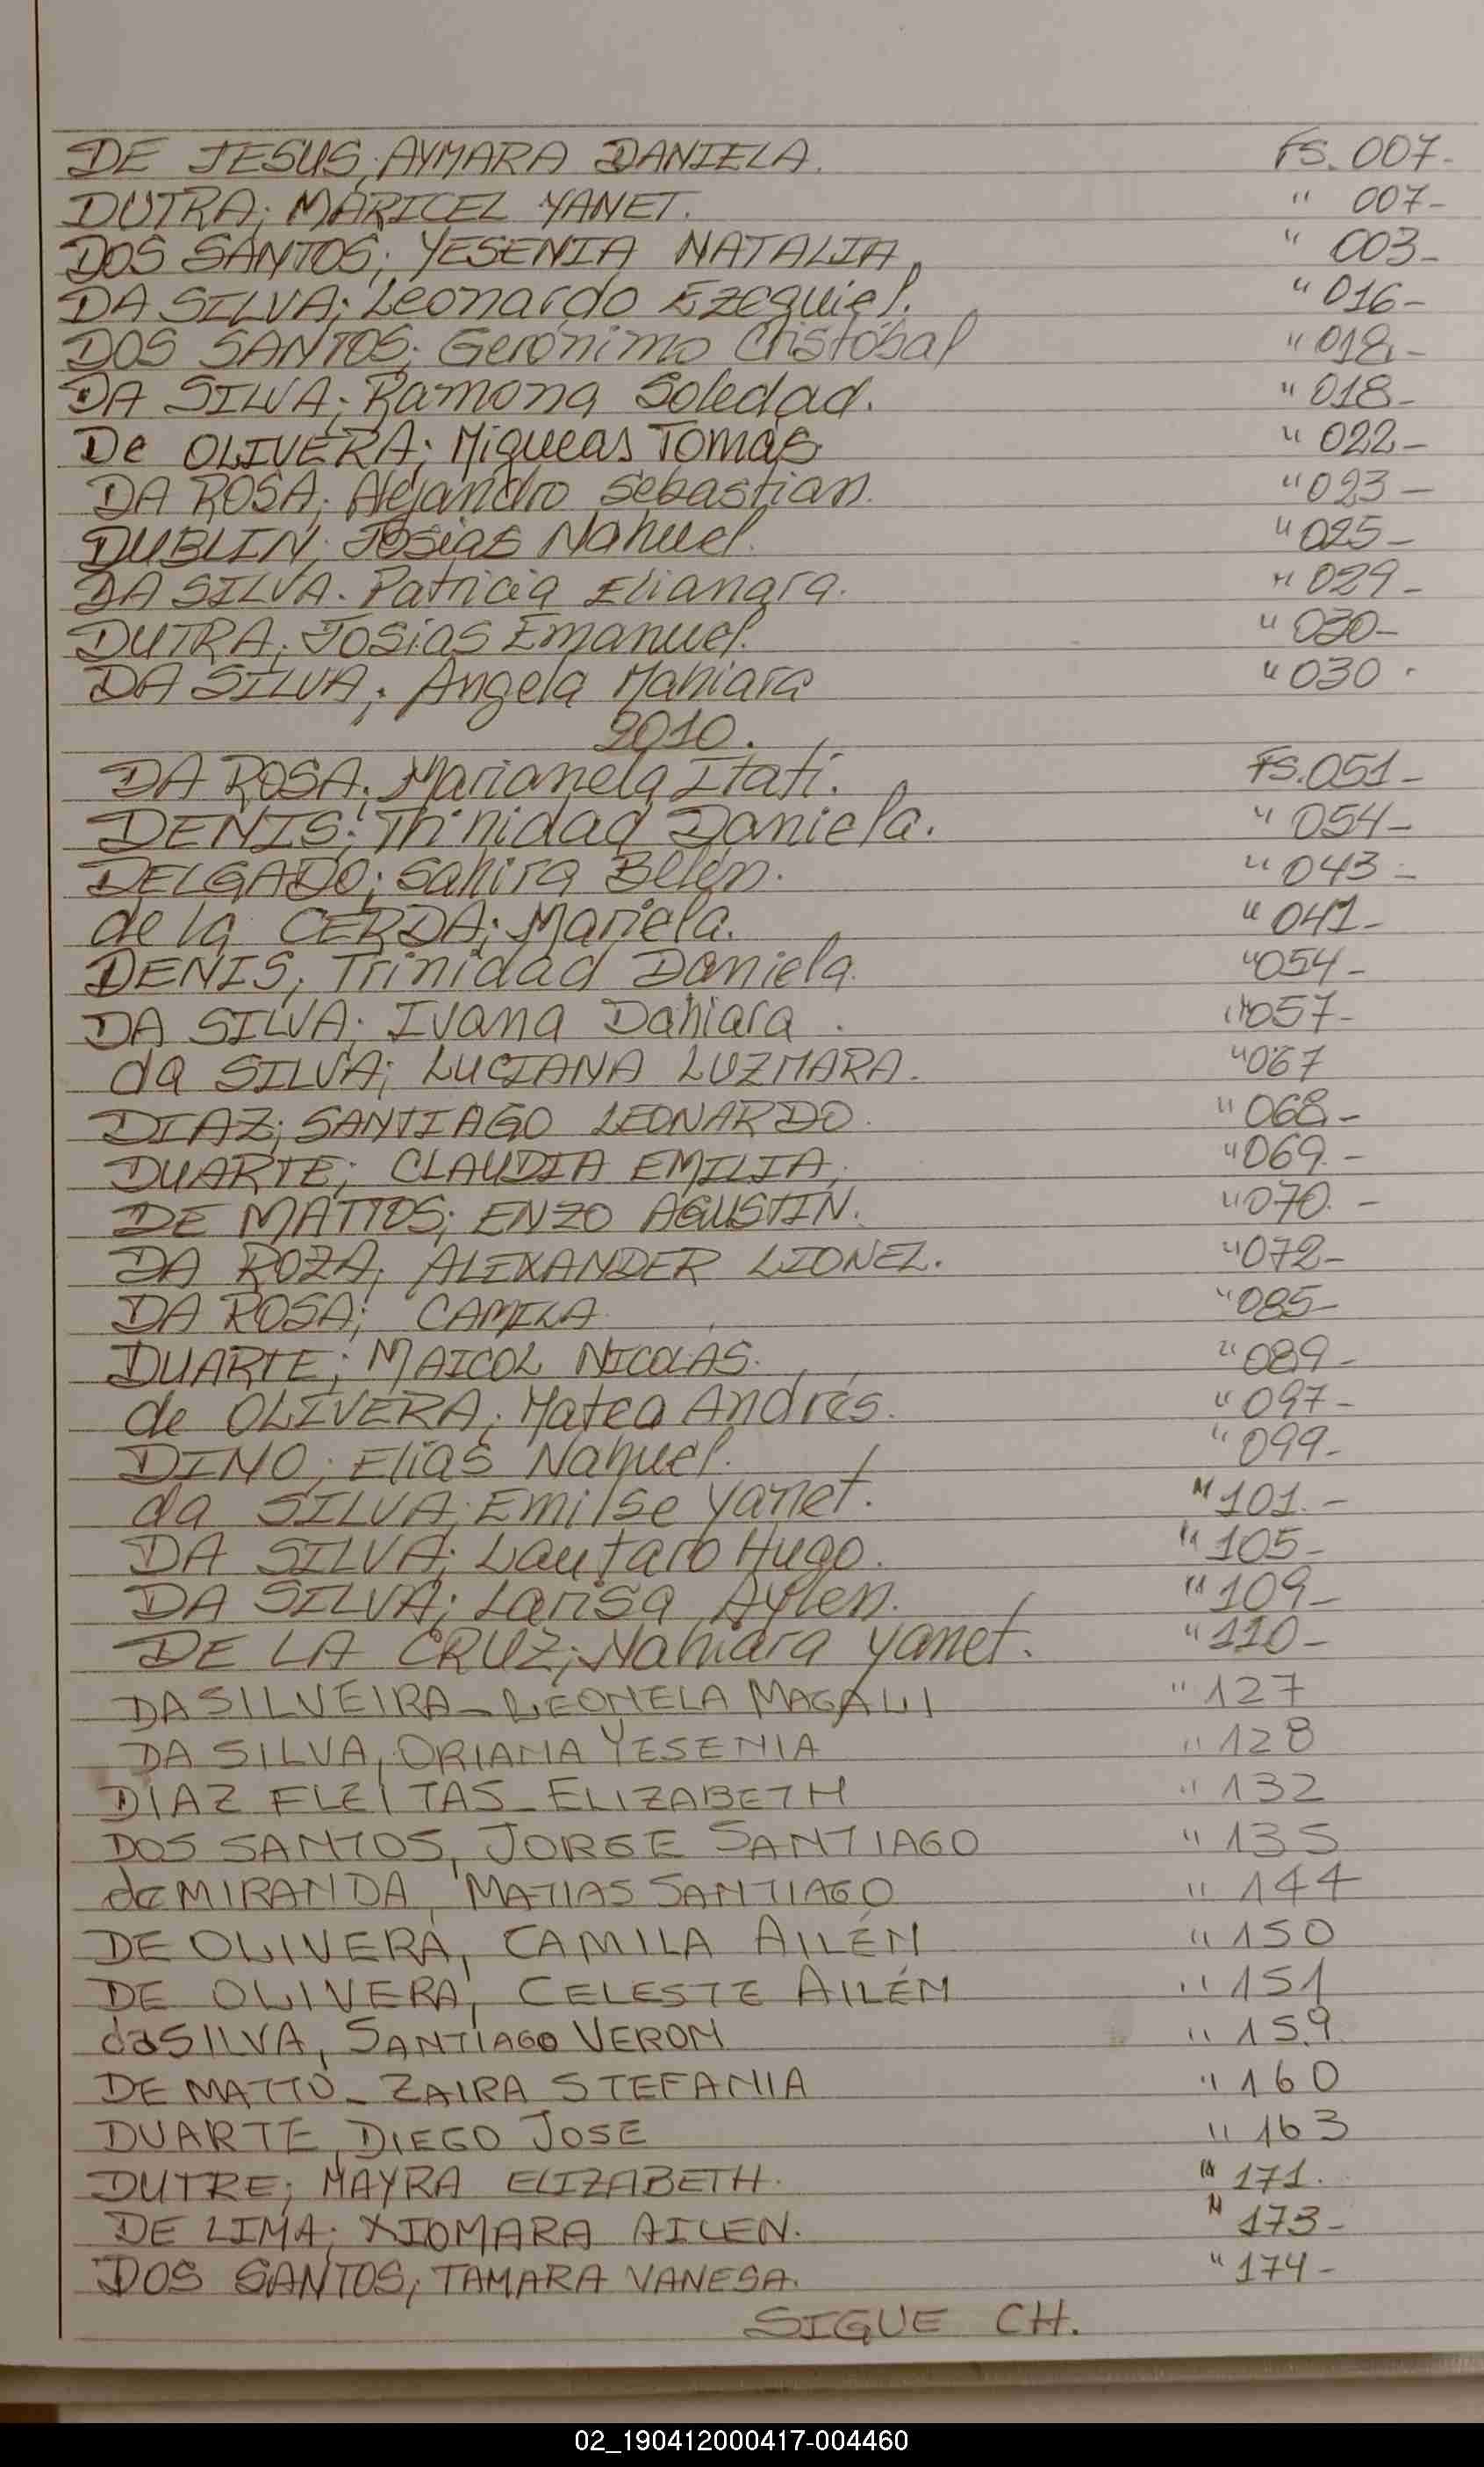 DE JESUS; AYMARA DANIELA. FS. 007-
DUTRA; MARICEL YANET. " 007-
DOS SANTOS; YESENIA NATALIA " 003-
DA SILVA; Leonardo Ezequiel. " 016-
DOS SANTOS; Gerónimo Cristóbal " 018-
DA SILVA; Ramona Soledad. " 018-
De OLIVERA; Miqueas Tomás " 022-
DA ROSA; Alejandro Sebastian. " 023-
DUBLIN; Josias Nahuel. " 025-
DA SILVA. Patricia Elianara. " 029-
DUTRA; Josias Emanuel. " 030-
DA SILVA; Angela Mahiara " 030.
2010.
DA ROSA; Marianela Itatí. FS. 051-
DENIS; Trinidad Daniela. " 054-
DELGADO; Sahira Belén. " 043-
de la CERDA; Mariela. " 041-
DENIS; Trinidad Daniela. " 054-
DA SILVA; Ivana Dahiara. " 057-
da SILVA; LUCIANA LUZMARA. " 067
DIAZ; SANTIAGO LEONARDO. " 068-
DUARTE; CLAUDIA EMILIA. " 069.-
DE MATTOS; ENZO AGUSTIN. " 070.-
DA ROZA; ALEXANDER LIONEL. " 072-
DA ROSA; CAMILA " 085-
DUARTE; MAICOL NICOLAS. " 089-
de OLIVERA; Mateo Andrés. " 097-
DINO; Elías Nahuel. " 099-
da SILVA; Emilse Yanet. " 101.-
DA SILVA; Lautaro Hugo. " 105-
DA SILVA; Larisa Aylen. " 109-
DE LA CRUZ; Nahiara Yanet. " 110-
DA SILVEIRA - LEONELA MAGALI " 127
DA SILVA, ORIANA YESENIA " 128
DIAZ FLEITAS - ELIZABETH " 132
DOS SANTOS, JORGE SANTIAGO " 135
de MIRANDA, MATIAS SANTIAGO " 144
DE OLIVERA, CAMILA AILÉN " 150
DE OLIVERA, CELESTE AILÉN " 151
da SILVA, SANTIAGO VERON " 159
DE MATTO - ZAIRA STEFANIA " 160
DUARTE, DIEGO JOSE " 163
DUTRE; MAYRA ELIZABETH. " 171.
DE LIMA; XIOMARA AILEN. " 173-
DOS SANTOS; TAMARA VANESA. " 174-
SIGUE CH.
02_190412000417-004460